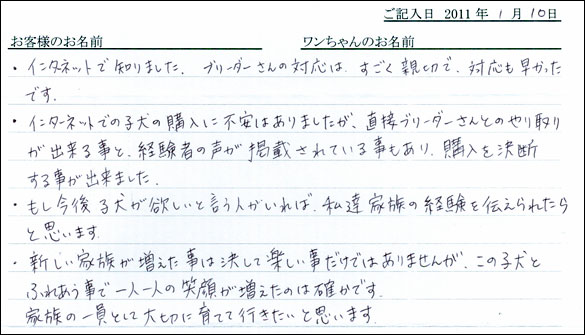 ご記入日 2011年 1月 10日
お客様のお名前 ワンちゃんのお名前
・インタネットで知りました. ブリーダーさんの対応は.すごく親切で.対応も早かった
です.
・インターネットでの子犬の購入に不安はありましたが、直接ブリーダーさんとのやり取り
が出来る事と、経験者の声が掲載されている事もあり.購入を決断
する事が出来ました.
・もし今後子犬が欲しいと言う人がいれば.私達家族の経験を伝えられたら
と思います.
・新しい家族が増えた事は決して楽しい事だけではありませんが.この子犬と
ふれあう事で一人一人の笑顔が増えたのは確かです.
家族の一員として大切に育てて行きたいと思います.